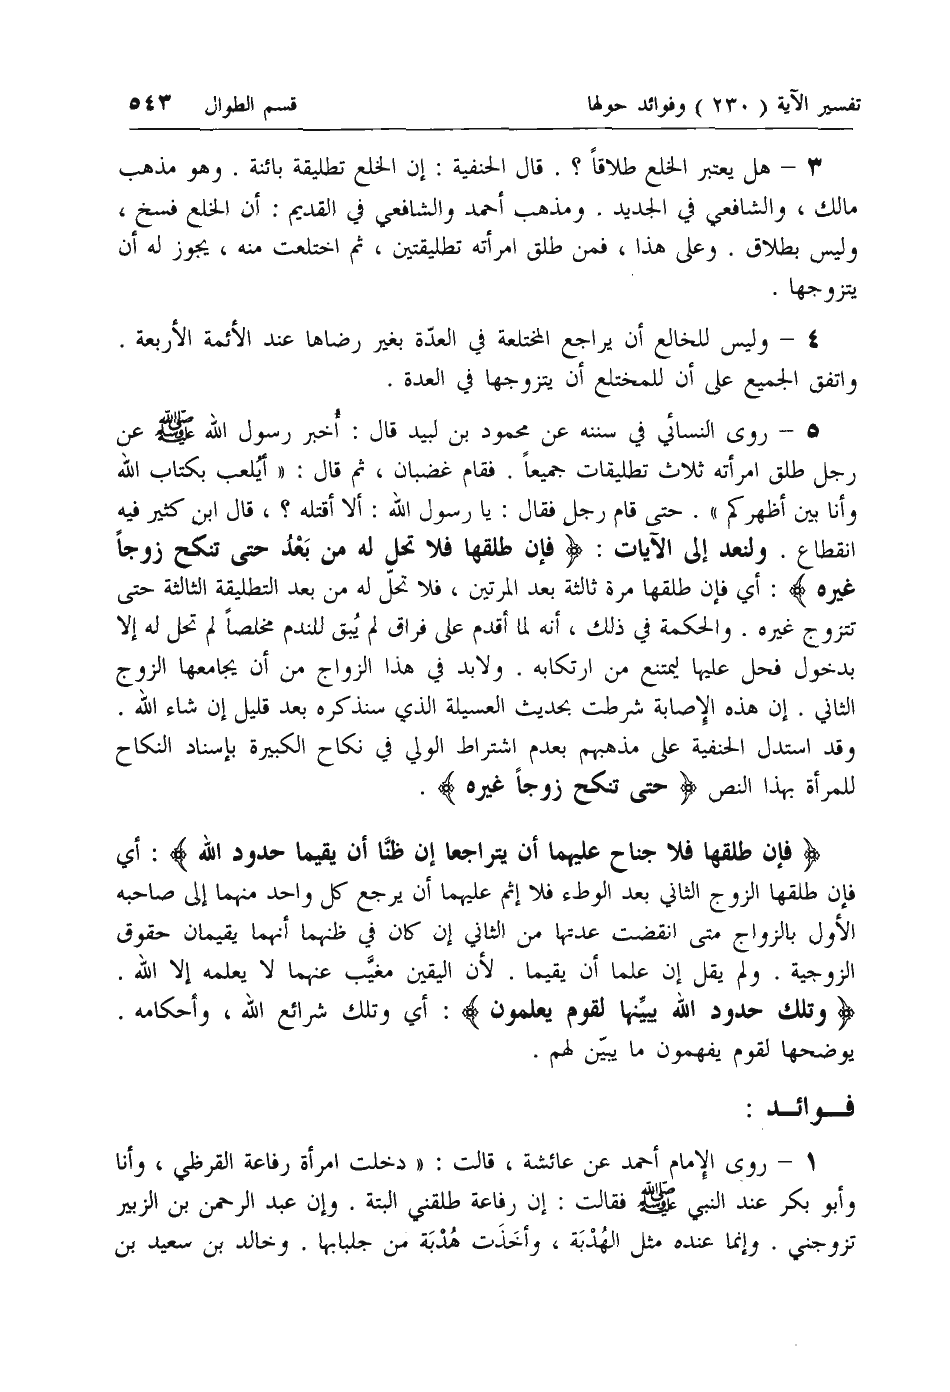 تفسير الآية ( ٢٣٠ ) وفوائد حولها قسم الطوال ٥٤٣
٣ – هل يعتبر الخلع طلاقاً ؟ . قال الحنفية : إن الخلع تطليقة بائنة . وهو مذهب
مالك ، والشافعي في الجديد . ومذهب أحمد والشافعي في القديم : أن الخلع فسخ ،
وليس بطلاق . وعلى هذا ، فمن طلق امرأته تطليقتين ، ثم اختلعت منه ، يجوز له أن
يتزوجها .
٤ – وليس للخالع أن يراجع المختلعة في العدّة بغير رضاها عند الأئمة الأربعة .
واتفق الجميع على أن للمختلع أن يتزوجها في العدة .
٥ – روى النسائي في سننه عن محمود بن لبيد قال : أُخبر رسول الله ﷺ عن
رجل طلق امرأته ثلاث تطليقات جميعاً . فقام غضبان ، ثم قال : « أيُلعب بكتاب الله
وأنا بين أظهركم » . حتى قام رجل فقال : يا رسول الله : ألا أقتله ؟ ، قال ابن كثير فيه
انقطاع . ولنعد إلى الآيات : ﴿ فإن طلقها فلا تحل له من بَعْدُ حتى تنكح زوجاً
غيره ﴾ : أي فإن طلقها مرة ثالثة بعد المرتين ، فلا تحلّ له من بعد التطليقة الثالثة حتى
تتزوج غيره . والحكمة في ذلك ، أنه لما أقدم على فراق لم يُبق للندم مخلصاً لم تحل له إلا
بدخول فحل عليها ليمتنع من ارتكابه . ولابد في هذا الزواج من أن يجامعها الزوج
الثاني . إن هذه الإصابة شرطت بحديث العسيلة الذي سنذكره بعد قليل إن شاء الله .
وقد استدل الحنفية على مذهبهم بعدم اشتراط الولي في نكاح الكبيرة بإسناد النكاح
للمرأة بهذا النص ﴿ حتى تنكح زوجاً غيره ﴾ .
﴿ فإن طلقها فلا جناح عليهما أن يتراجعا إن ظنَّا أن يقيما حدود الله ﴾ : أي
فإن طلقها الزوج الثاني بعد الوطء فلا إثم عليهما أن يرجع كل واحد منهما إلى صاحبه
الأول بالزواج متى انقضت عدتها من الثاني إن كان في ظنهما أنهما يقيمان حقوق
الزوجية . ولم يقل إن علما أن يقيما . لأن اليقين مغيَّب عنهما لا يعلمه إلا الله .
﴿ وتلك حدود الله يبيِّنها لقوم يعلمون ﴾ : أي وتلك شرائع الله ، وأحكامه .
يوضحها لقوم يفهمون ما يبيّن لهم .
فـــوائـــد :
١ – روى الإمام أحمد عن عائشة ، قالت : « دخلت امرأة رفاعة القرظي ، وأنا
وأبو بكر عند النبي ﷺ فقالت : إن رفاعة طلقني البتة . وإن عبد الرحمن بن الزبير
تزوجني . وإنما عنده مثل الهُدْبَة ، وأخَذَت هُدْبَة من جلبابها . وخالد بن سعيد بن